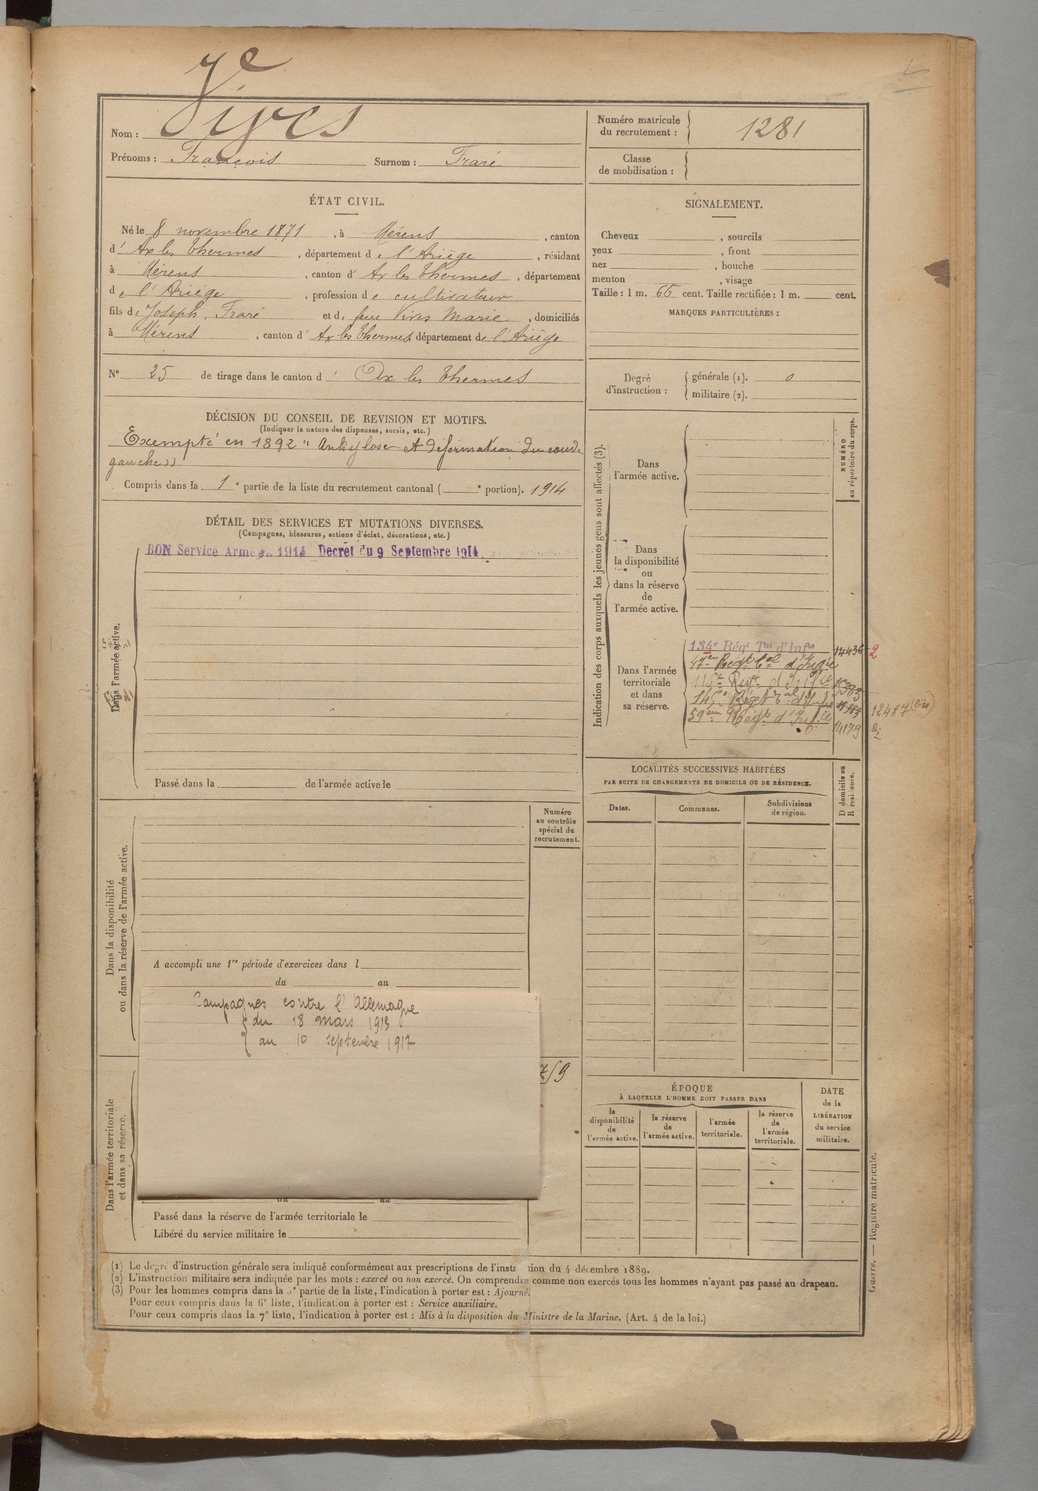 7e
Nom : Vives
Prénoms : François Surnom : Fraré
Numéro matricule du recrutement : 1281
Classe de mobilisation :
ÉTAT CIVIL.
Né le 8 novembre 1871, à Mérens, canton
d' Ax les Thermes, département de l'Ariège, résidant
à Mérens, canton d' Ax les Thermes, département
de l'Ariège, profession de cultivateur
fils de Joseph Fraré et de feue Vives Marie, domiciliés
à Mérens, canton d' Ax les Thermes département de l'Ariège
N° 25 de tirage dans le canton d' Ax les Thermes
SIGNALEMENT.
Cheveux , sourcils
yeux , front
nez , bouche
menton , visage
Taille : 1 m. 66 cent. Taille rectifiée : 1 m. cent.
MARQUES PARTICULIÈRES :
Degré d'instruction : générale (1). 0
militaire (2).
DÉCISION DU CONSEIL DE REVISION ET MOTIFS.
(Indiquer la nature des dispenses, sursis, etc.)
Exempté en 1892 " Ankylose et déformation du coude
gauche "
Compris dans la 1e partie de la liste du recrutement cantonal ( e portion). 1914
DÉTAIL DES SERVICES ET MUTATIONS DIVERSES.
(Campagnes, blessures, actions d'éclat, décorations, etc.)
BON Service Armé 1914 Decret du 9 Septembre 1914
Dans l'armée active.
Passé dans la de l'armée active le
Indication des corps auxquels les jeunes gens sont affectés (3).
NUMÉRO
au répertoire du corps.
Dans
l'armée active.
Dans
la disponibilité
ou
dans la réserve
de
l'armée active.
Dans l'armée
territoriale
et dans
sa réserve.
134e Régt Tal d'Infie 14436 2
Régt Tal d'Infie
Régt d'Infie
145e Régt Tal d'Infie 12417 (bis)
59eme Régt d'Infie 14179
LOCALITÉS SUCCESSIVES HABITÉES
PAR SUITE DE CHANGEMENTS DE DOMICILE OU DE RÉSIDENCE.
Dates.
Communes.
Subdivisions
de région.
D domicile ou
R résidence.
Dans la disponibilité
ou dans la réserve de l'armée active.
Numéro
au contrôle
spécial du
recrutement.
A accompli une 1re période d'exercices dans l
du au
Campagnes contre l'Allemagne
du 18 mars 1915
au 10 septembre 1917
Dans l'armée territoriale
et dans sa réserve.
Passé dans la réserve de l'armée territoriale le
Libéré du service militaire le
ÉPOQUE
À LAQUELLE L'HOMME DOIT PASSER DANS
la
disponibilité
de
l'armée active.
la réserve
de
l'armée active.
l'armée
territoriale.
la réserve
de
l'armée
territoriale.
DATE
de la
LIBÉRATION
du service
militaire.
Guerre. — Registre matricule.
(1) Le degré d'instruction générale sera indiqué conformément aux prescriptions de l'instruction du 4 décembre 1889.
(2) L'instruction militaire sera indiquée par les mots : exercé ou non exercé. On comprendra comme non exercés tous les hommes n'ayant pas passé au drapeau.
(3) Pour les hommes compris dans la 5e partie de la liste, l'indication à porter est : Ajourné.
Pour ceux compris dans la 6e liste, l'indication à porter est : Service auxiliaire.
Pour ceux compris dans la 7e liste, l'indication à porter est : Mis à la disposition du Ministre de la Marine. (Art. 4 de la loi.)